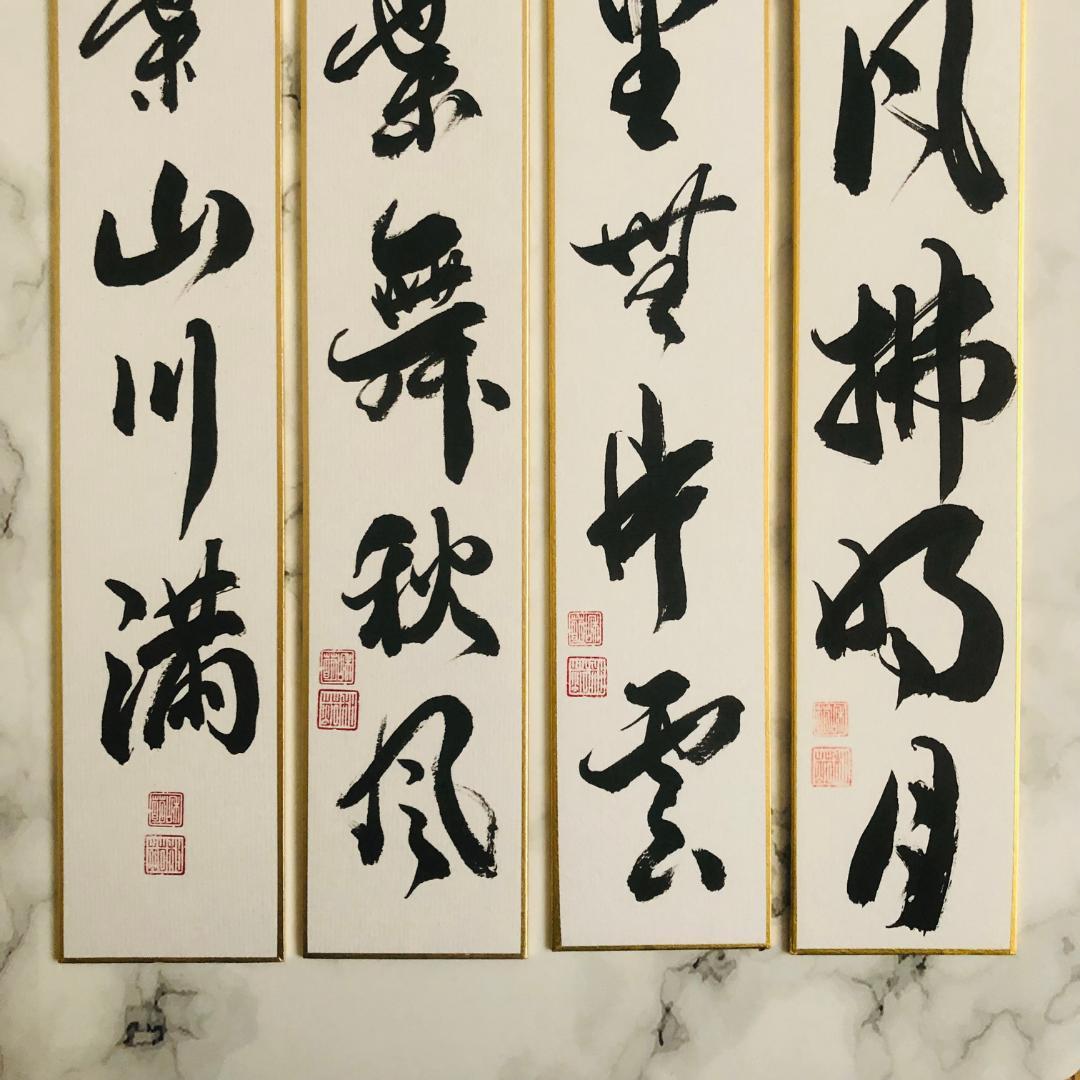 風拂明月
里無片雲
葉舞秋風
葉山川満